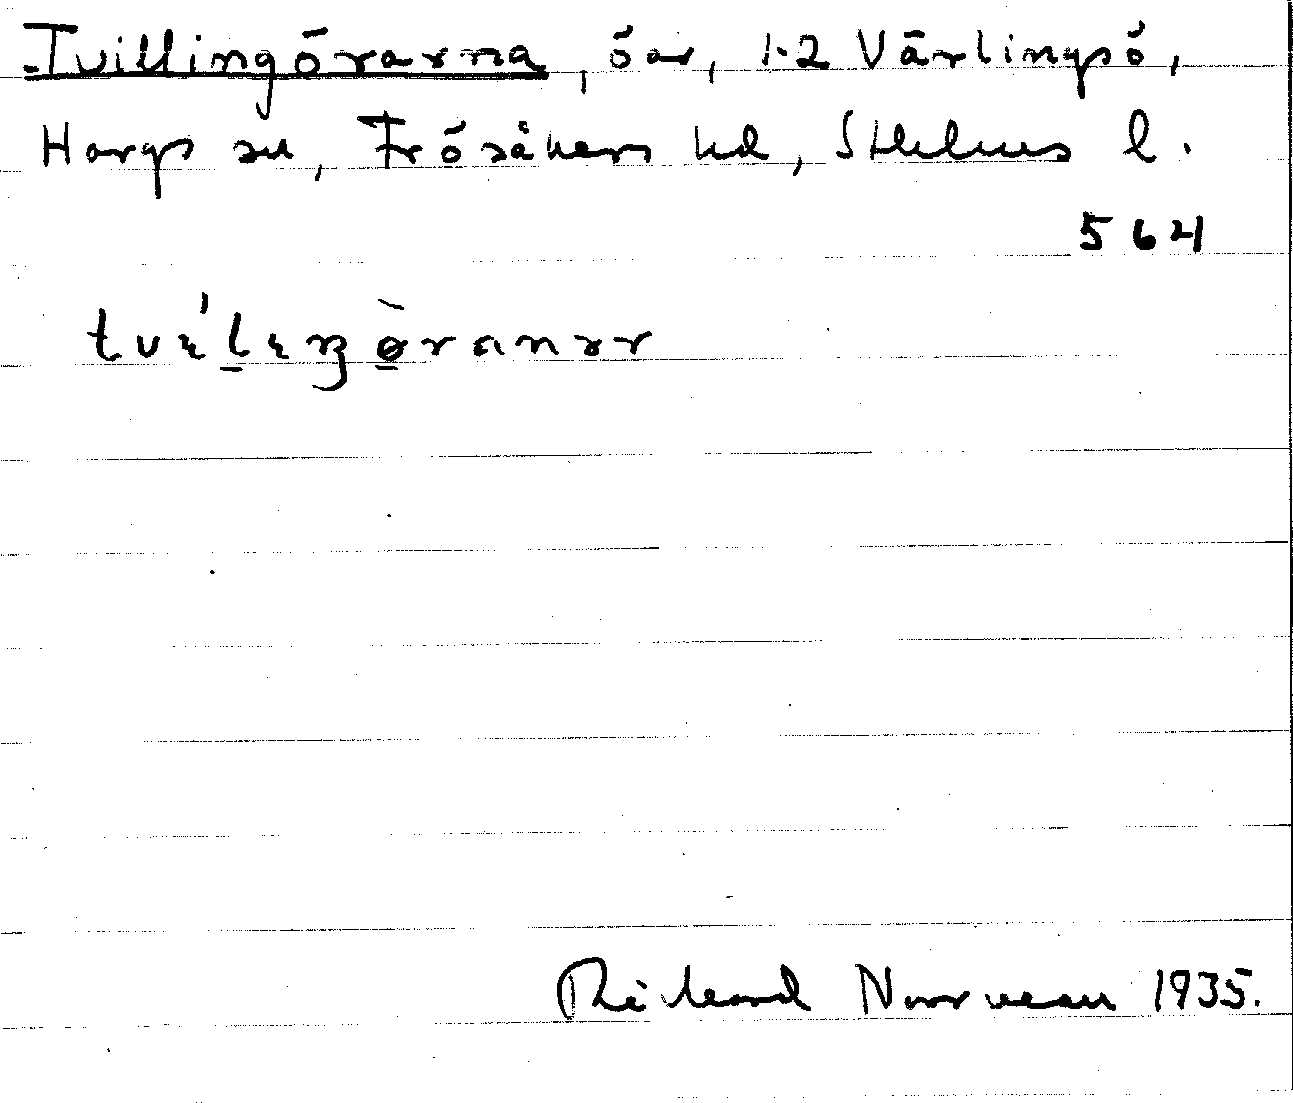 Tvillingörarna, öar, 1-2 Värlingsö,
Hargs sn, Frösåkers hd, Sthlms l.
564
Rickard Norrman 1935.